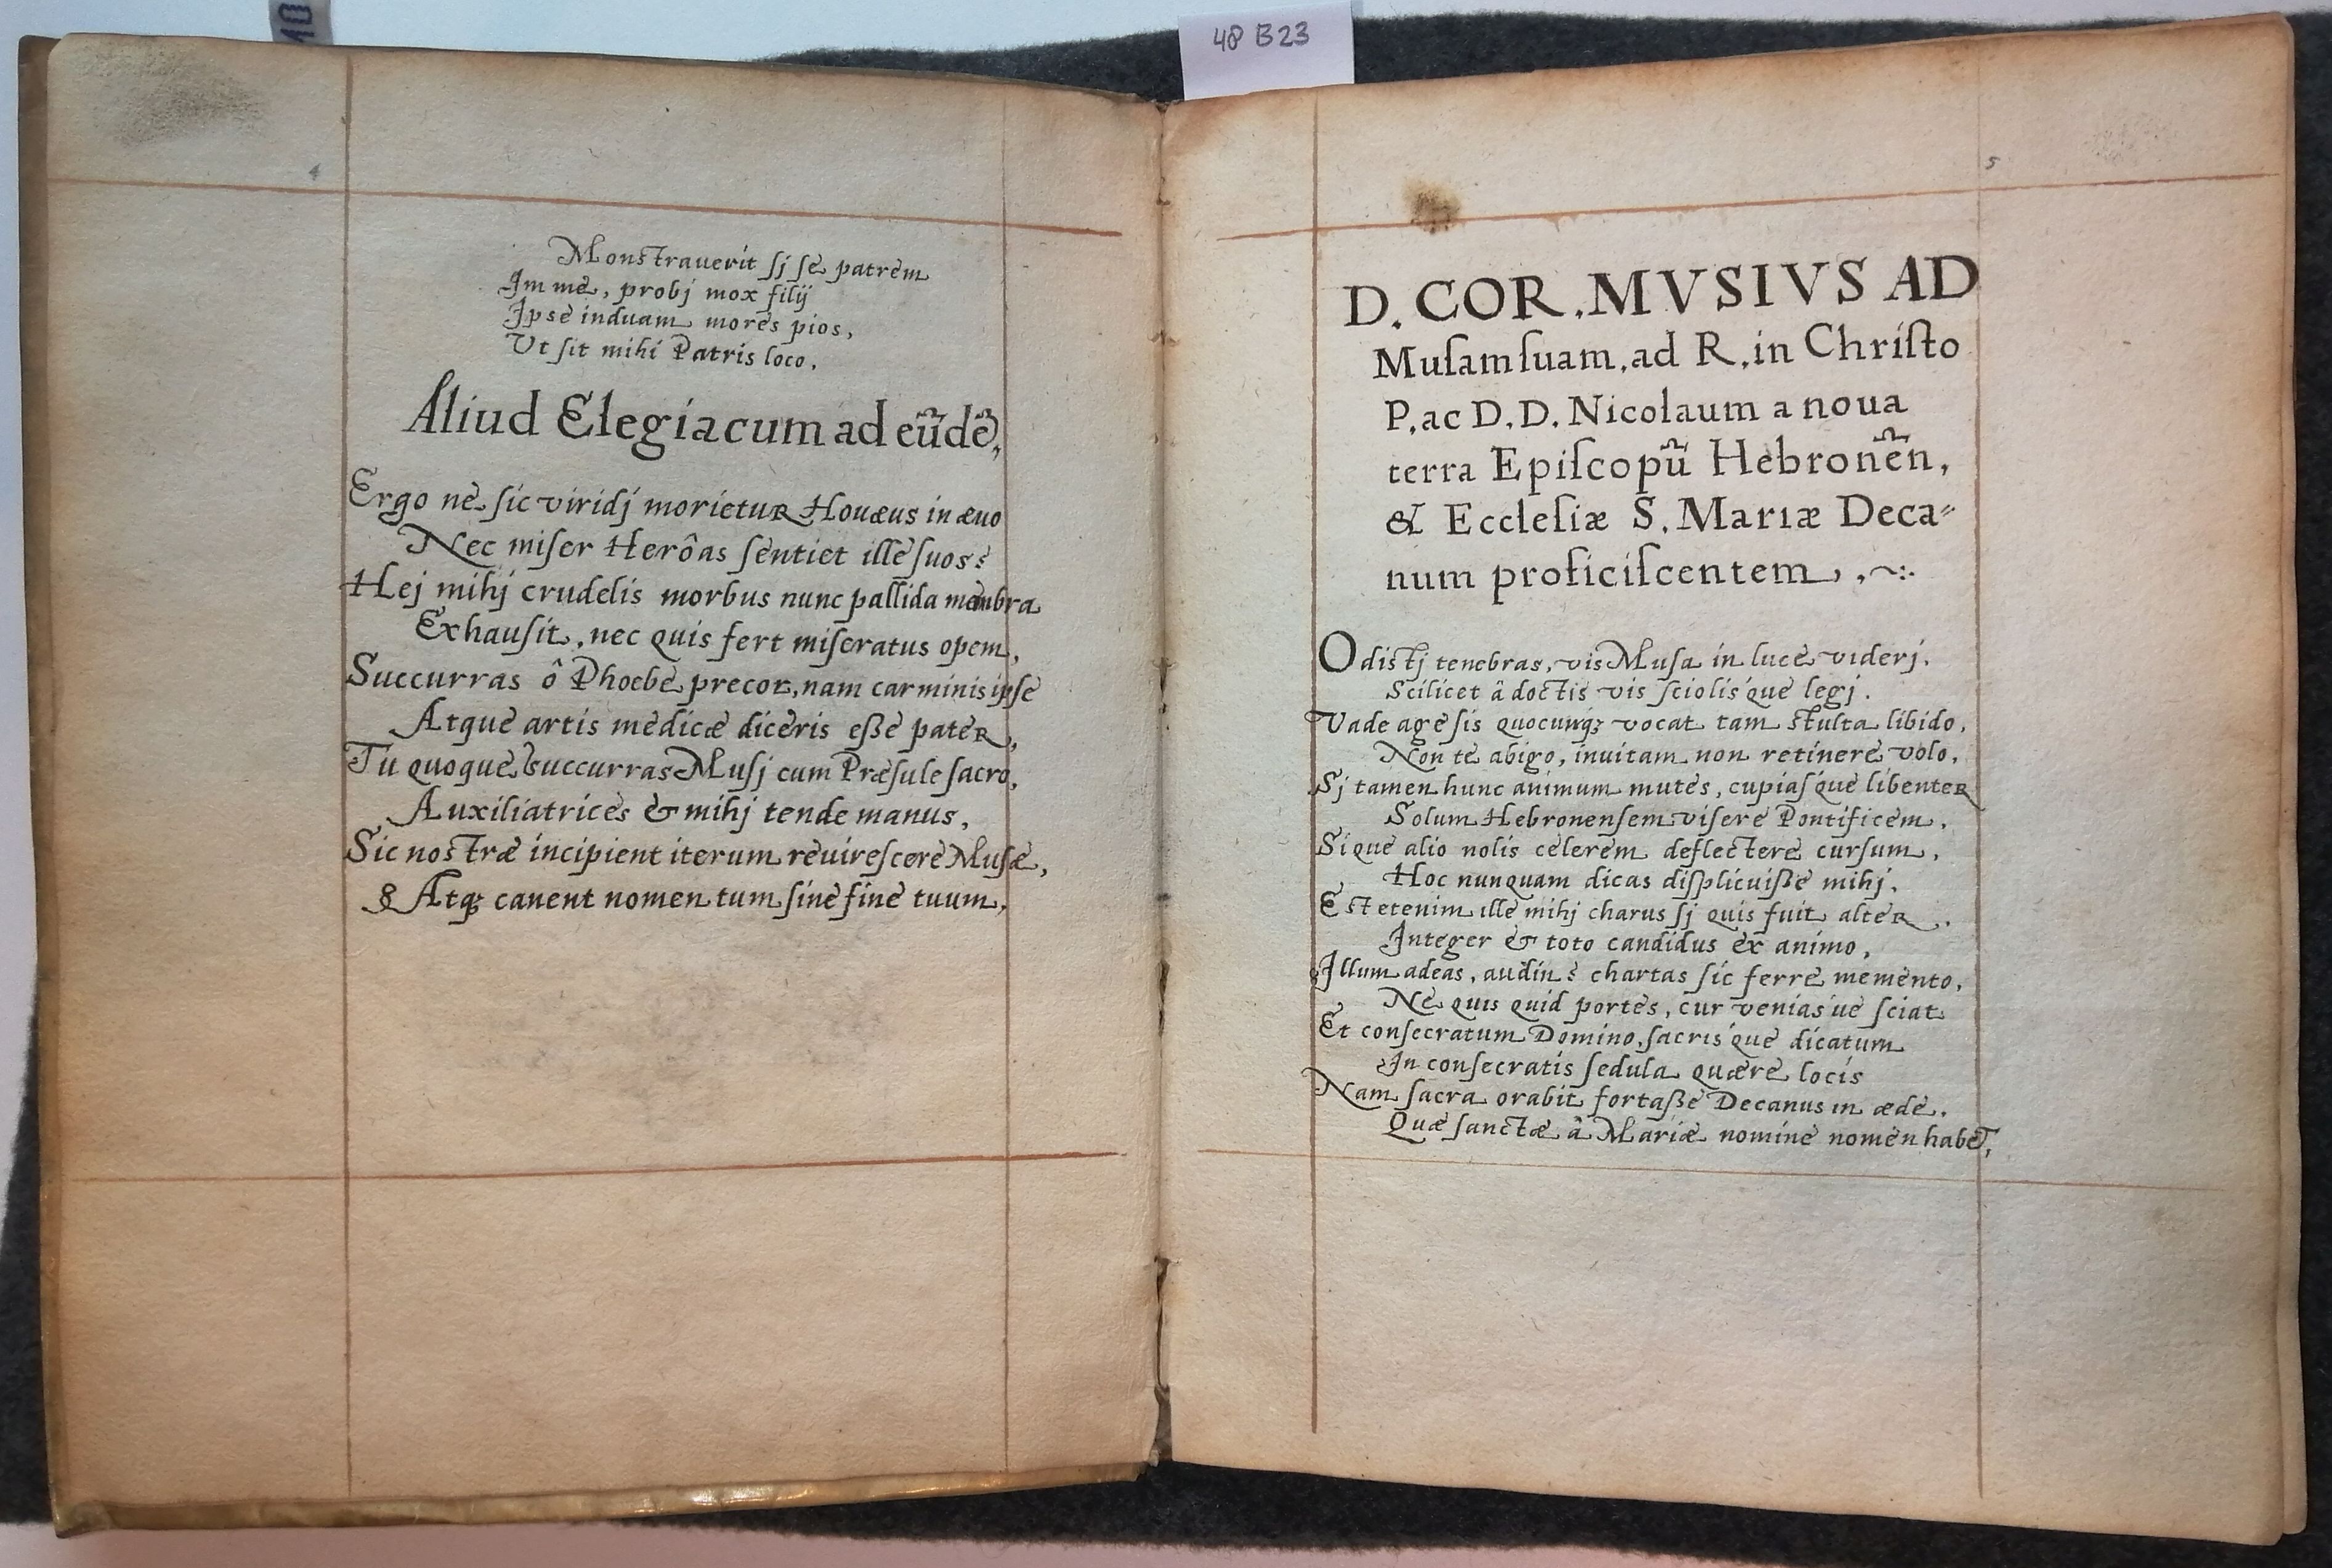 10
48 B23
4
Monstrauerit sj se patrem
Im me, probj mox filij
Ipse induam mores pios,
Ut sit mihi Patris loco.
Aliud Elegiacum ad eũdẽ,
Ergo ne sic viridj morietur Houæus in æuo
Nec miser Herôas sentiet ille suos?
Hej mihj crudelis morbus nunc pallida membra
Exhausit, nec quis fert miseratus opem,
Succurras ô Phoebe precor, nam carminis ipse
Atque artis medicæ diceris esse pater,
Tu quoque succurras Musj cum Præsule sacro,
Auxiliatrices & mihj tende manus,
Sic nostræ incipient iterum reuirescere Musæ,
Atq; canent nomen tum sine fine tuum,
5
D. COR. MVSIVS AD
Musam suam, ad R. in Christo
P. ac D. D. Nicolaum a noua
terra Episcopũ Hebronẽn,
& Ecclesiæ S. Mariæ Deca⸗
num proficiscentem,
Odistj tenebras, vis Musa in luce viderj.
Scilicet â doctis vis sciolis'que legj.
Vade age sis quocunq; vocat tam stulta libido,
Non te abigo, inuitam non retinere volo,
Sj tamen hunc animum mutes, cupias'que libenter
Solum Hebronensem visere Pontificem,
Sique alio nolis celerem deflectere cursum,
Hoc nunquam dicas displicuisse mihj.
Est etenim ille mihj charus sj quis fuit alter,
Integer & toto candidus ex animo,
Illum adeas, audin? chartas sic ferre memento,
Ne quis quid portes, cur venias'ue sciat
Et consecratum Domino, sacris'que dicatum
In consecratis sedula quære locis
Nam sacra orabit fortasse Decanus in æde,
Quæ sanctæ â Mariæ nomine nomen habet,